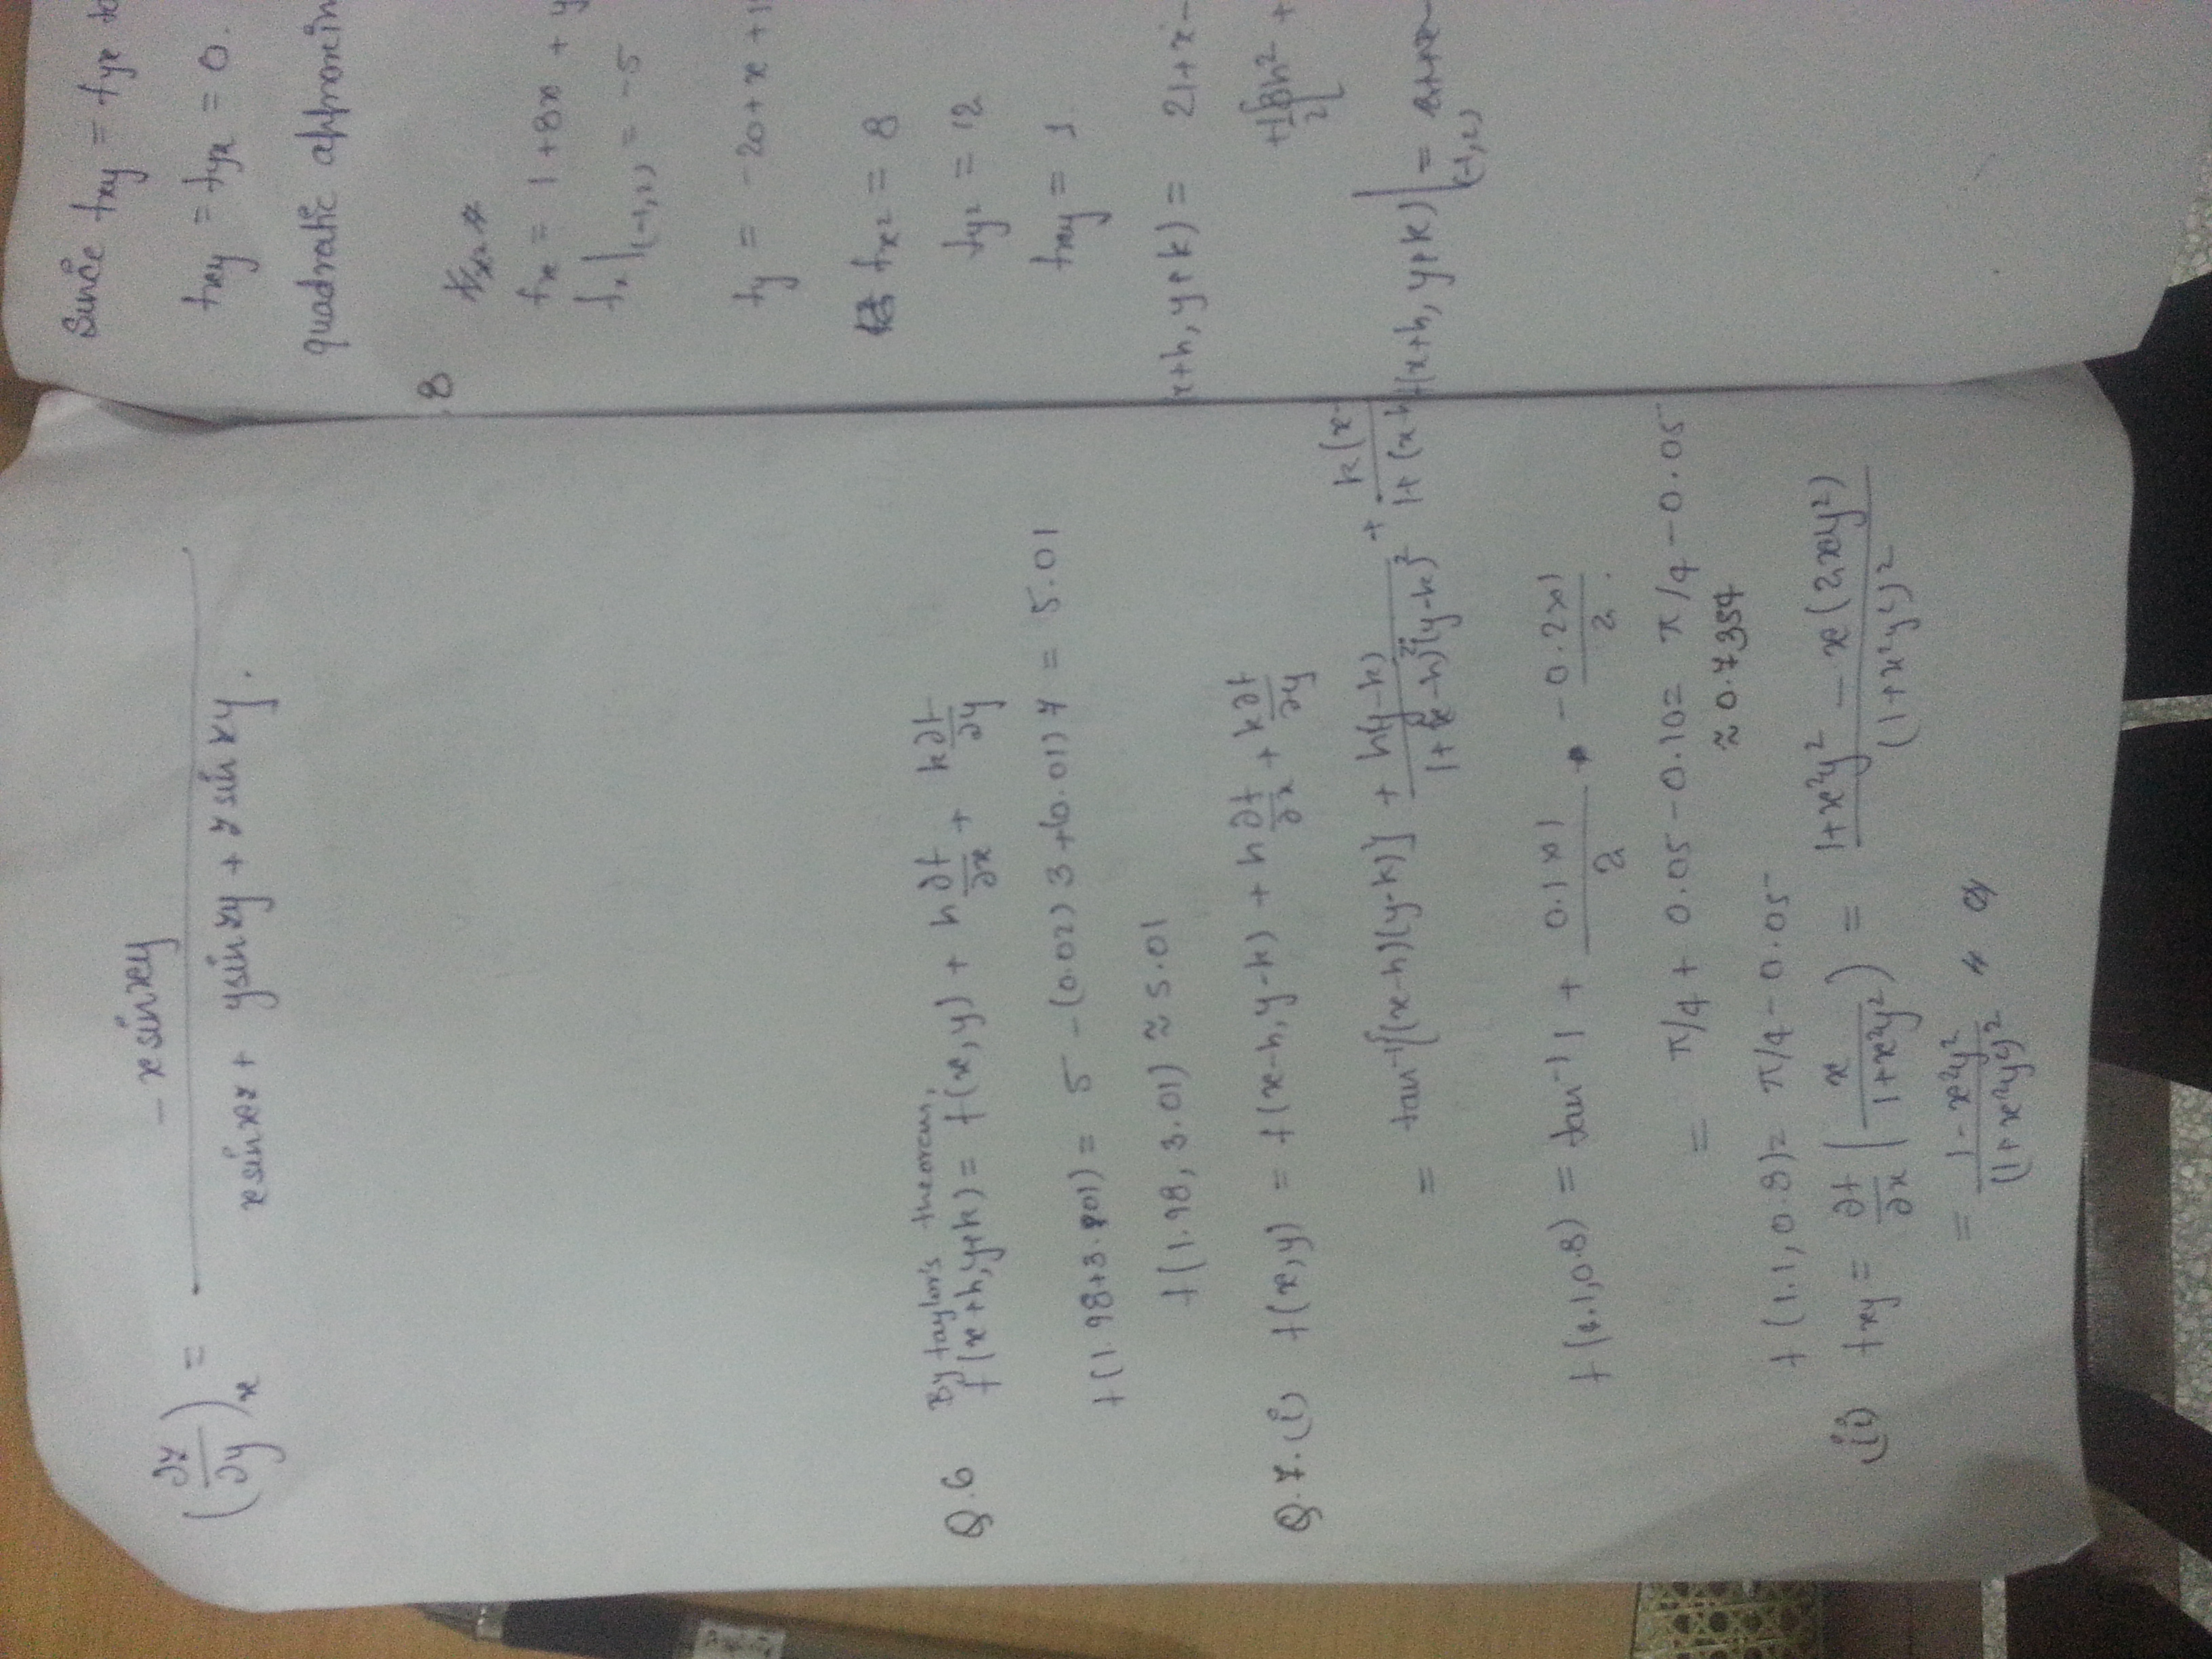 (∂z/∂y)x = - x sin xy / x sin xz + y sin zy + z sin xy.
Q.6 By taylor's theorem,
f(x+h, y+k) = f(x,y) + h ∂f/∂x + k ∂f/∂y
f(1.98+3.01) = 5 - (0.02) 3 + (0.01) 7 = 5.01
f(1.98, 3.01) ≈ 5.01
Q.7. (i) f(x,y) = f(x-h, y-k) + h ∂f/∂x + k ∂f/∂y
= tan⁻¹{(x-h)(y-k)} + h(y-k) / 1+(x-h)²(y-k)² + k(x- / 1+(x-h
f(1.1,0.8) = tan⁻¹ 1 + 0.1×1 / 2 - 0.2×1 / 2
= π/4 + 0.05 - 0.10 = π/4 - 0.05
≈ 0.7354
f(1.1, 0.8) = π/4 - 0.05
(ii) fxy = ∂f/∂x (x / 1+x²y²) = 1+x²y² - x(2xy²) / (1+x²y²)²
= 1-x²y² / (1+x²y²)²
Since fxy = fyx
fxy = fyx = 0.
quadratic approxim
8
fx = 1 + 8x + y
fx|(-1,2) = -5
fy = -20 + x + 1
fx² = 8
fy² = 12
fxy = 1
x+h, y+k) = 21+x-
+ 1/2 [8h² +
f(x+h, y+k)|(-1,2) =